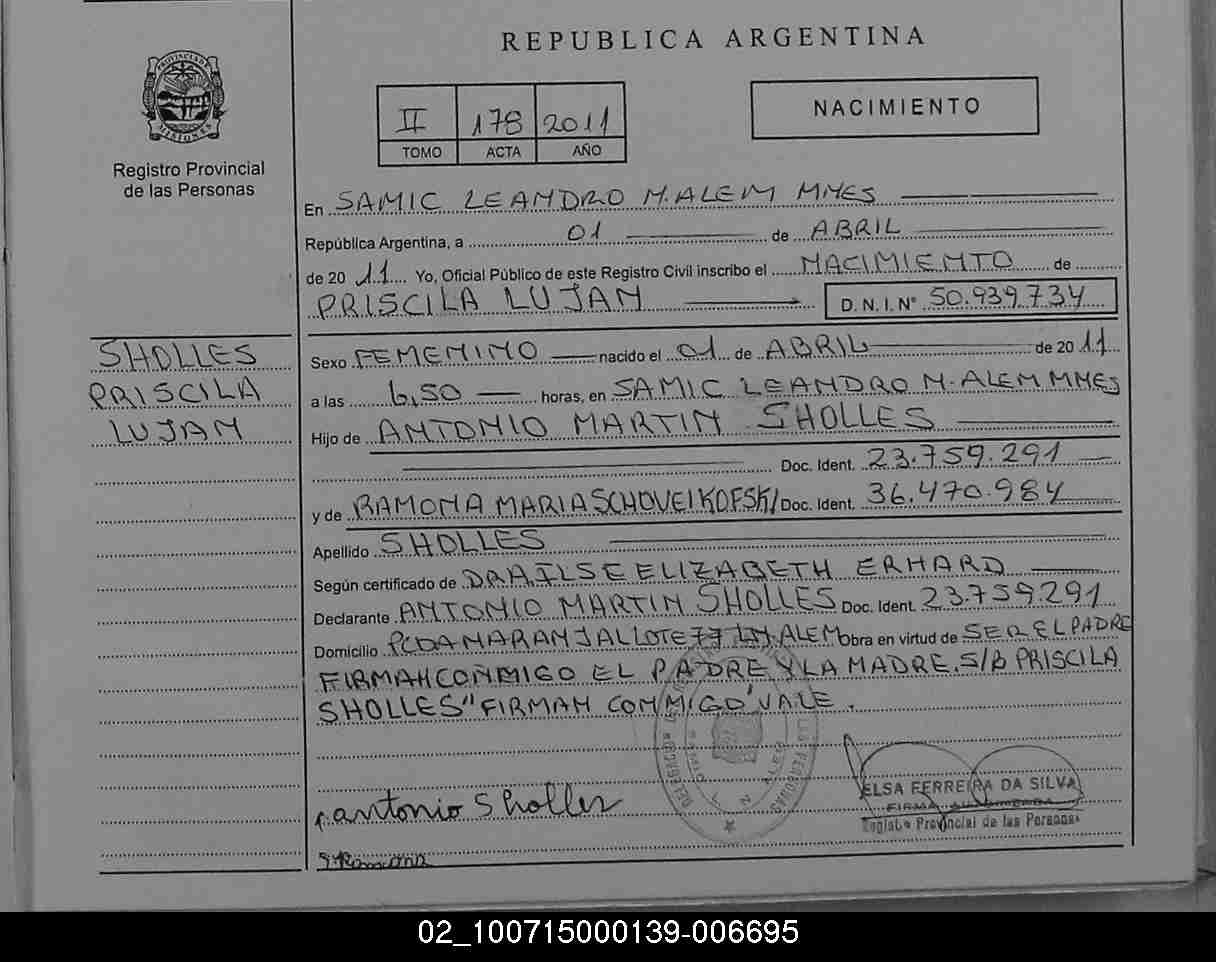 REPUBLICA ARGENTINA
PROVINCIA DE MISIONES
Registro Provincial
de las Personas
II 178 2011
TOMO ACTA AÑO
NACIMIENTO
En SAMIC LEANDRO N. ALEM MNES
República Argentina, a 01 de ABRIL
de 20 11 Yo, Oficial Público de este Registro Civil inscribo el NACIMIENTO de
PRISCILA LUJAN D. N. I. N° 50.939.734
SHOLLES
PRISCILA
LUJAN
Sexo FEMENINO nacido el 01 de ABRIL de 20 11
a las 6,50 horas, en SAMIC LEANDRO N. ALEM MNES
Hijo de ANTONIO MARTIN SHOLLES
Doc. Ident. 23.759.291
y de RAMONA MARIA SCHOVEIKOFSKI Doc. Ident. 36.470.984
Apellido SHOLLES
Según certificado de DRA ILSE ELIZABETH ERHARD
Declarante ANTONIO MARTIN SHOLLES Doc. Ident. 23.759291
Domicilio PCDA NARANJAL LOTE 77 LN. ALEM Obra en virtud de SER EL PADRE
FIRMAN CONMIGO EL PADRE Y LA MADRE. S/B PRISCILA
SHOLLES "FIRMAN CONMIGO" VALE.
antonio Sholles
S. Ramona
ELSA FERREIRA DA SILVA
FIRMA AUTORIZADA
Registro Provincial de las Personas
02_100715000139-006695